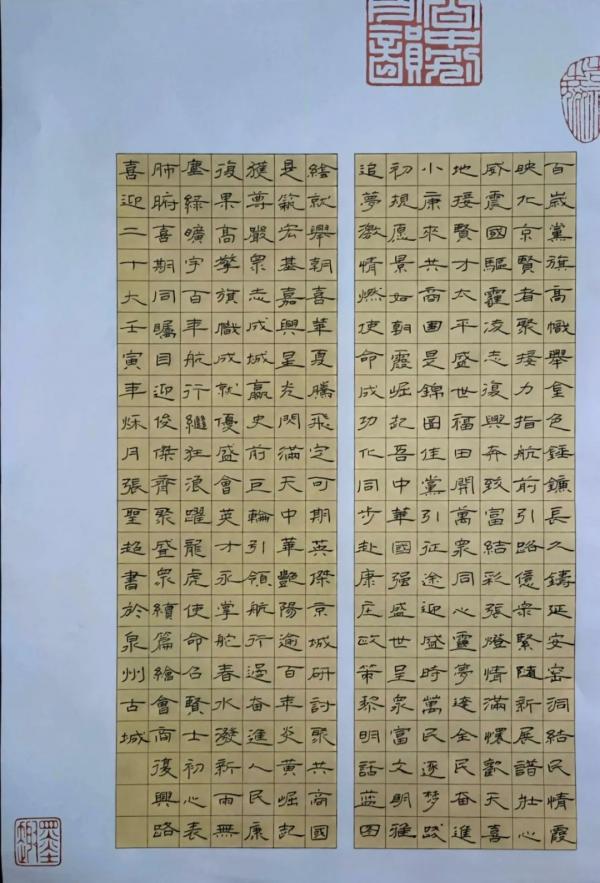 百歲黨旗高幟舉金色錘鐮長久鑄延安窑洞結民情霞
映北京賢者聚接力指航前引路億衆緊隨新展譜壯心
威震國驅霾凌志復興奔致富結彩張燈情滿懷歡天喜
地接賢才太平盛世福田開萬衆同心靈夢逹全民奋進
小康來共商國是錦圖佳黨引征途迎盛時萬民逐梦踐
初規愿景如朝霞崛起吾中華國强盛世呈衆富文明雅
追夢激情燃使命成功化同步赴康庄政策黎明話蓝图
繪就舉朝喜華夏騰飛定可期英傑京城研討聚共商國
是氣宏基嘉興星光閃滿天中華艷陽逾百年炎黃崛起
獲尊嚴衆志成城贏史前巨輪引領航行過奋進人民康
復果高擎旗幟成就優盛會英才永掌舵春水潑新雨無
塵綠曠宇百年航行繼狂浪躍龍虎使命召賢士初心表
肺腑喜期同矚目迎俊傑齊聚盛衆續篇繪會商復興路
喜迎二十大壬寅年秌月張聖超書於泉州古城